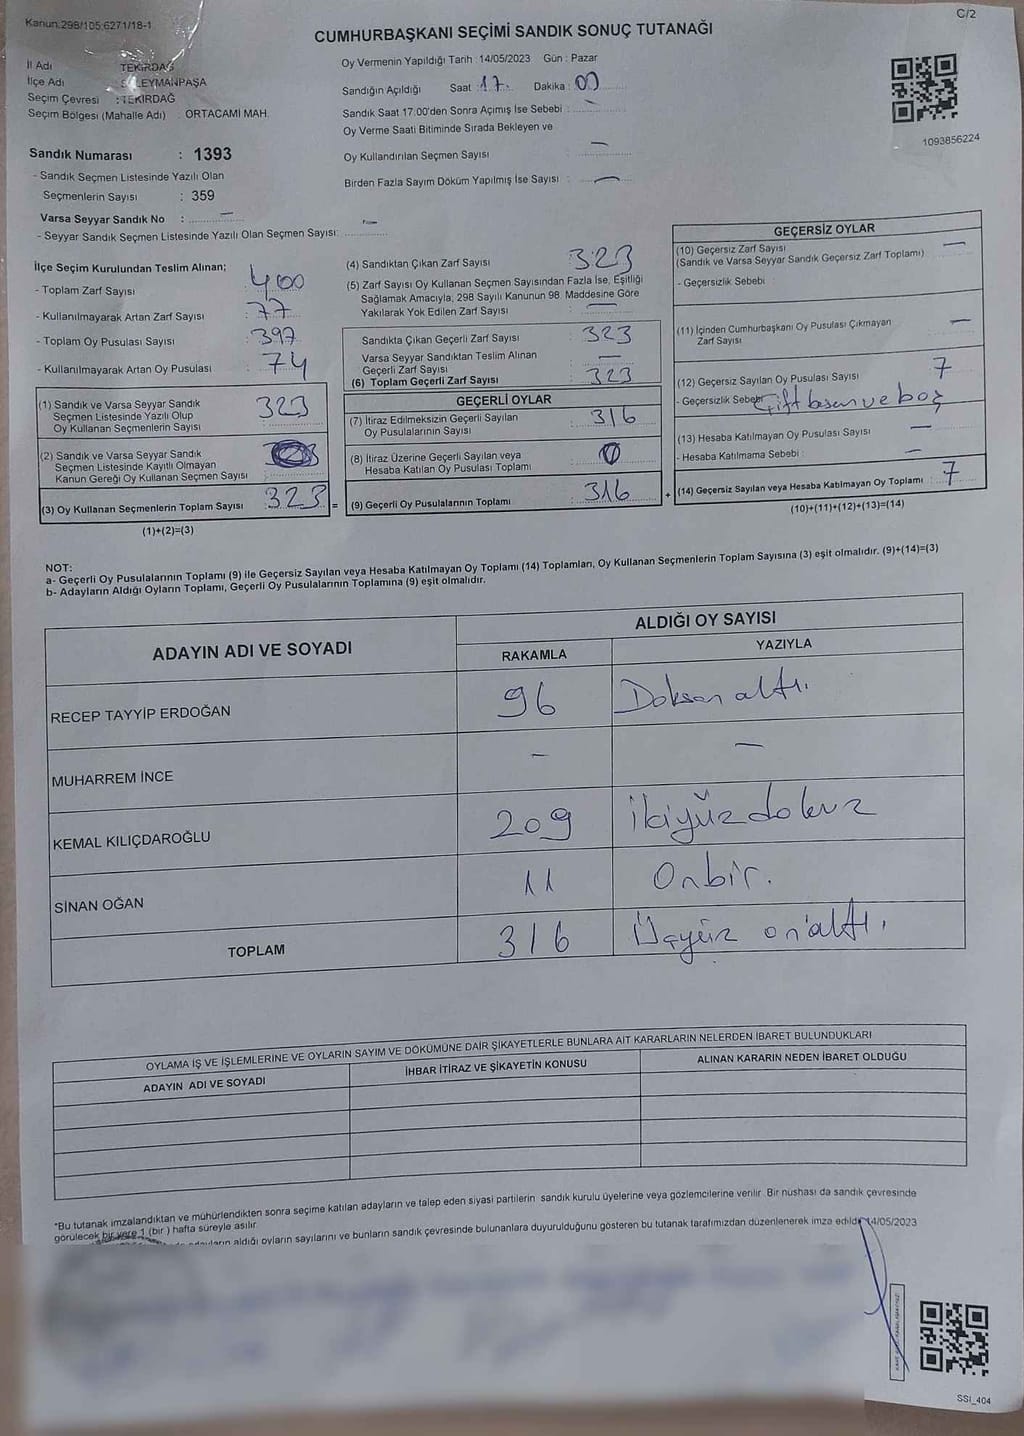 Kanun.298/105 6271/18-1
C/2
CUMHURBAŞKANI SEÇİMİ SANDIK SONUÇ TUTANAĞI
İl Adı TEKİRDAĞ
İlçe Adı SÜLEYMANPAŞA
Seçim Çevresi : TEKİRDAĞ
Seçim Bölgesi (Mahalle Adı) : ORTACAMİ MAH.
Oy Vermenin Yapıldığı Tarih 14/05/2023 Gün : Pazar
Sandığın Açıldığı Saat : 17. Dakika : 00
Sandık Saat 17:00'den Sonra Açımış İse Sebebi : -
Oy Verme Saati Bitiminde Sırada Bekleyen ve
Oy Kullandırılan Seçmen Sayısı : -
Birden Fazla Sayım Döküm Yapılmış İse Sayısı : -
1093856224
Sandık Numarası : 1393
- Sandık Seçmen Listesinde Yazılı Olan
Seçmenlerin Sayısı : 359
Varsa Seyyar Sandık No : -
- Seyyar Sandık Seçmen Listesinde Yazılı Olan Seçmen Sayısı: -
İlçe Seçim Kurulundan Teslim Alınan;
- Toplam Zarf Sayısı : 400
- Kullanılmayarak Artan Zarf Sayısı : 77
- Toplam Oy Pusulası Sayısı : 397
- Kullanılmayarak Artan Oy Pusulası : 74
(1) Sandık ve Varsa Seyyar Sandık
Seçmen Listesinde Yazılı Olup
Oy Kullanan Seçmenlerin Sayısı : 323
(2) Sandık ve Varsa Seyyar Sandık
Seçmen Listesinde Kayıtlı Olmayan
Kanun Gereği Oy Kullanan Seçmen Sayısı
(3) Oy Kullanan Seçmenlerin Toplam Sayısı : 323 =
(1)+(2)=(3)
(4) Sandıktan Çıkan Zarf Sayısı : 323
(5) Zarf Sayısı Oy Kullanan Seçmen Sayısından Fazla İse, Eşitliği
Sağlamak Amacıyla, 298 Sayılı Kanunun 98 Maddesine Göre
Yakılarak Yok Edilen Zarf Sayısı : -
Sandıkta Çıkan Geçerli Zarf Sayısı : 323
Varsa Seyyar Sandıktan Teslim Alınan
Geçerli Zarf Sayısı : -
(6) Toplam Geçerli Zarf Sayısı : 323
GEÇERLİ OYLAR
(7) İtiraz Edilmeksizin Geçerli Sayılan
Oy Pusulalarının Sayısı : 316
(8) İtiraz Üzerine Geçerli Sayılan veya
Hesaba Katılan Oy Pusulası Toplamı : 0
(9) Geçerli Oy Pusulalarının Toplamı : 316 +
GEÇERSİZ OYLAR
(10) Geçersiz Zarf Sayısı : -
(Sandık ve Varsa Seyyar Sandık Geçersiz Zarf Toplamı)
- Geçersizlik Sebebi :
(11) İçinden Cumhurbaşkanı Oy Pusulası Çıkmayan
Zarf Sayısı : -
(12) Geçersiz Sayılan Oy Pusulası Sayısı : 7
- Geçersizlik Sebebi : Çift basım ve boş
(13) Hesaba Katılmayan Oy Pusulası Sayısı : -
- Hesaba Katılmama Sebebi : -
(14) Geçersiz Sayılan veya Hesaba Katılmayan Oy Toplamı : 7
(10)+(11)+(12)+(13)=(14)
NOT:
a- Geçerli Oy Pusulalarının Toplamı (9) ile Geçersiz Sayılan veya Hesaba Katılmayan Oy Toplamı (14) Toplamları, Oy Kullanan Seçmenlerin Toplam Sayısına (3) eşit olmalıdır. (9)+(14)=(3)
b- Adayların Aldığı Oyların Toplamı, Geçerli Oy Pusulalarının Toplamına (9) eşit olmalıdır.
ADAYIN ADI VE SOYADI
ALDIĞI OY SAYISI
RAKAMLA YAZIYLA
RECEP TAYYİP ERDOĞAN 96 Doksan altı.
MUHARREM İNCE - -
KEMAL KILIÇDAROĞLU 209 ikiyüz dokuz
SİNAN OĞAN 11 Onbir.
TOPLAM 316 Üçyüz on altı.
OYLAMA İŞ VE İŞLEMLERİNE VE OYLARIN SAYIM VE DÖKÜMÜNE DAİR ŞİKAYETLERLE BUNLARA AİT KARARLARIN NELERDEN İBARET BULUNDUKLARI
ADAYIN ADI VE SOYADI İHBAR İTİRAZ VE ŞİKAYETİN KONUSU ALINAN KARARIN NEDEN İBARET OLDUĞU
*Bu tutanak imzalandıktan ve mühürlendikten sonra seçime katılan adayların ve talep eden siyasi partilerin sandık kurulu üyelerine veya gözlemcilerine verilir. Bir nüshası da sandık çevresinde
görülecek bir yere 1 (bir) hafta süreyle asılır.
adayların aldığı oyların sayılarını ve bunların sandık çevresinde bulunanlara duyurulduğunu gösteren bu tutanak tarafımızdan düzenlenerek imza edildi 14/05/2023
SSI_404